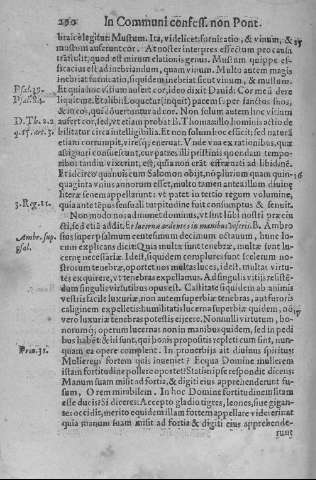 290 In Communi confess. non Pont.
braicè legitur: Mustum. Ita, videlicet: fornicatio, & vinum, &
mustum auferunt cor. At noster interpres effectum pro causa
trástulit, quod est mirum elationis genus. Mustum quippe ef-
ficacius est ad inebriandum, quam vinum. Multo autem magis
inebriat fornicatio, si quidem inebriat, sicut vinum, & mustum.
Psal. 39. Et quia hoc vitium aufert cor, ideo dixit Dauid: Cor meũ dere
Psal. 84. liquit me. Et alibi: Loquetur (inquit) pacem super sanctos suos,
& in eos, qui cõuertuntur ad cor. Non solum autem hoc vitium
D. Th. 2. 2 aufert cor, sed, vt etiam probat B. Thomas illo Iominis actio de
q. 15. art. 3. bilitatur circa intelligibilia. Et non solum hoc efficit; sed naturã
etiam corrumpit, viresq; eneruat. Vnde viva ex rationibus, quæ
assignari consueuerunt, cur patres illi pristini quondam tempo-
ribus tandiu vixerint, est; quia non erãt effrænati ad libidinẽ.
Et id circo quanuis cum Salomon obijt, nõ plurium quam quin- 16
quaginta vnius annorum esset, multo tamen ante illum diuinæ
literæ senem appellarunt: vt patet in tertio regum volumine,
3. Reg. 11. quia ante tẽpus senili turpitudine fuit consumptus & senuit.
Non modo nos admonet dominus, vt sint lũbi nostri præcin
cti, sed etiã addit: Et lucernæ ardentes in manibus vestris. B. Ambro
Ambr. sup. sius super psalmum centesimum decimum octauum, hunc lo-
psal. cum explicans dicit: Quia multæ sunt tenebræ, multæ sunt lu-
cernæ necessariæ. Idest, siquidem complures sunt scelerum no-
strorum tenebræ, oportet nos multas luces, idest, multas virtu-
tes exquirere, vt tenebras expellamus. Ad singula vitia resistẽ-
dum singulis virtutibus opus est. Castitate siquidem ab animis
vestris facile luxuriæ, non autem superbiæ tenebras, aut furoris
caliginem expelletis: humilitatis lucerna superbiæ quidem, nõ
vero luxuriæ tenebras potestis eijcere. Nonnulli virtutem, bo-
norumq; operum lucernas non in manibus quidem, sed in pedi
bus habẽt: & ij sunt, qui bonis propositis repleti cum sint, nun-
Prou. 31. quam ea opere complent. In prouerbijs ait diuinus spiritus:
Mulierem fortem quis inueniet? Ecqua Domine mulierem
ista in fortitudine pollere oportet? Statim ipse respondit dicens:
Manum suam misit ad fortia, & digiti eius apprehenderunt fu-
sum, O rem mirabilem. In hoc Domine fortitudinẽ sitam
esse ducis? Si diceres: Accepto gladio tigres, leones, siue gigan-
tes occidit, merito equidem illam fortem appellare viderer: at
quia manum suam misit ad fortia & digiti eius apprehende-
runt